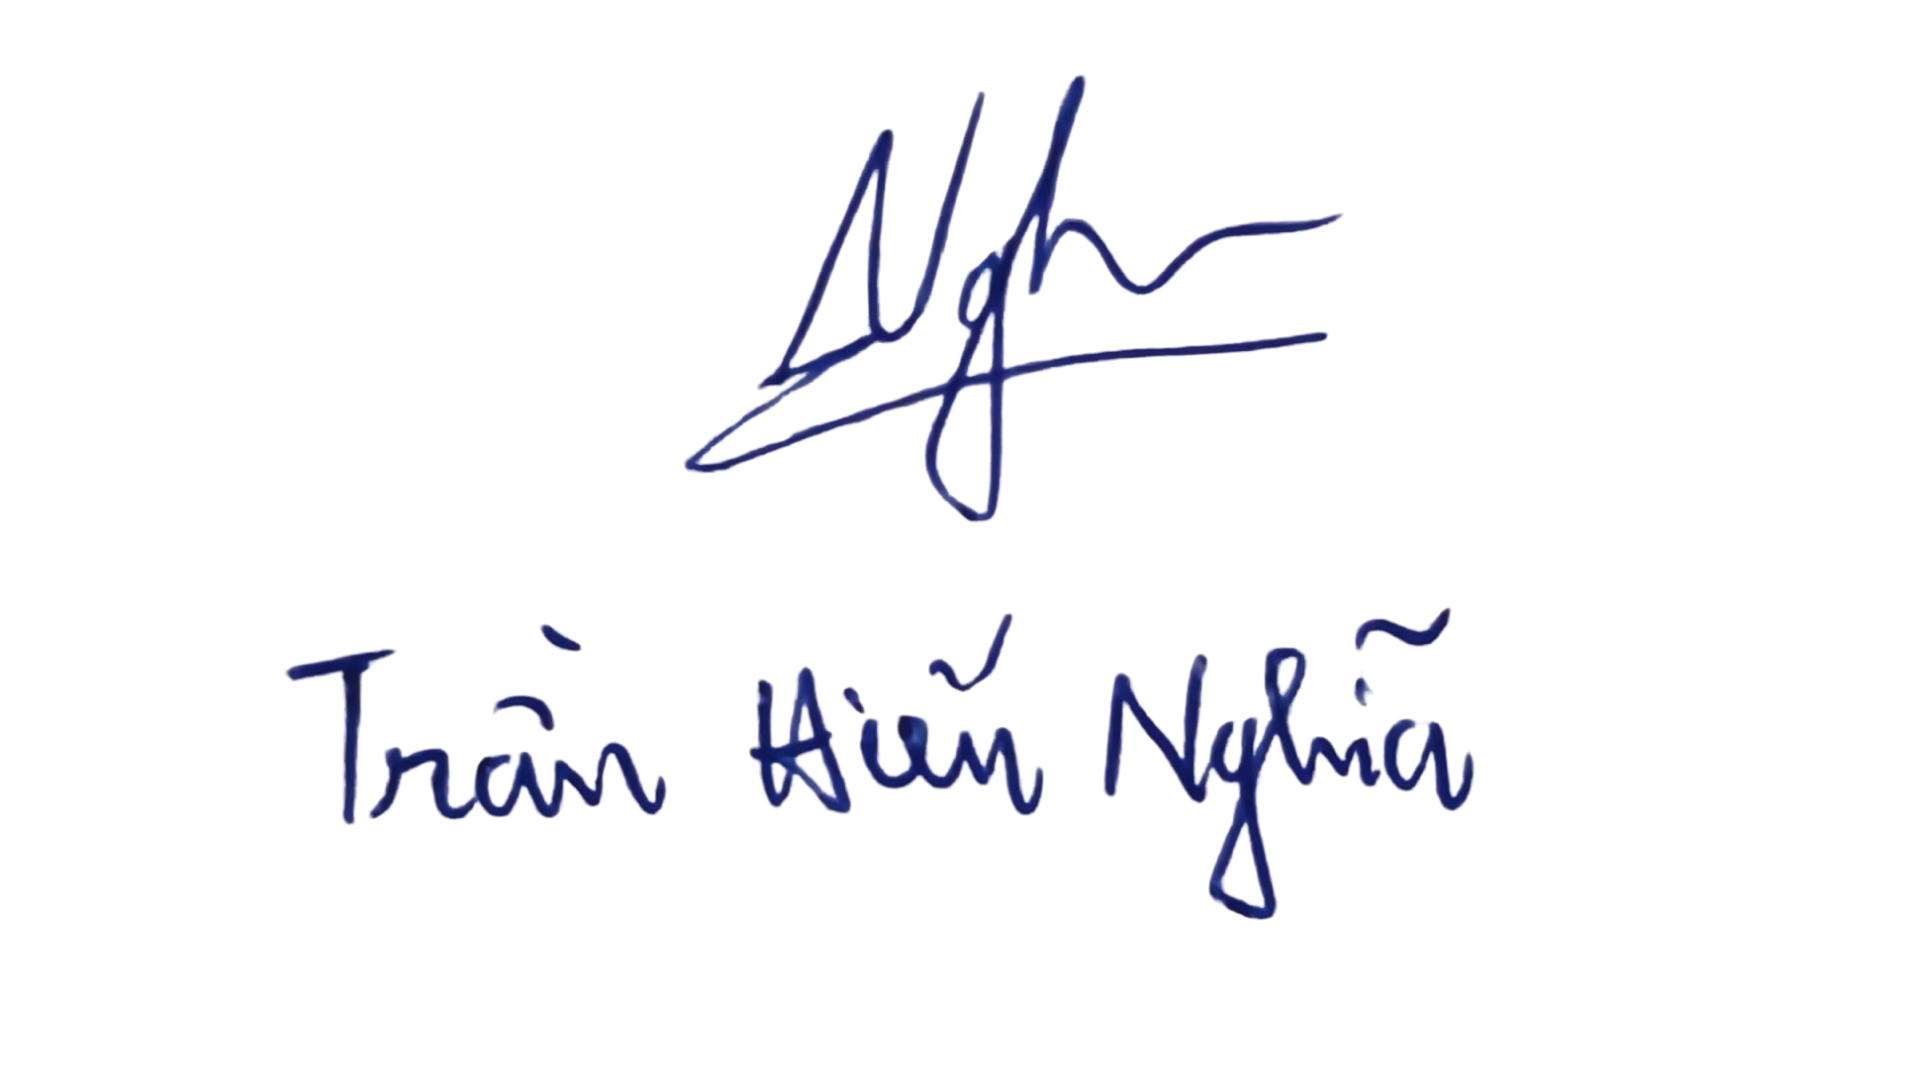 Ngh
Trần Hiếu Nghĩa